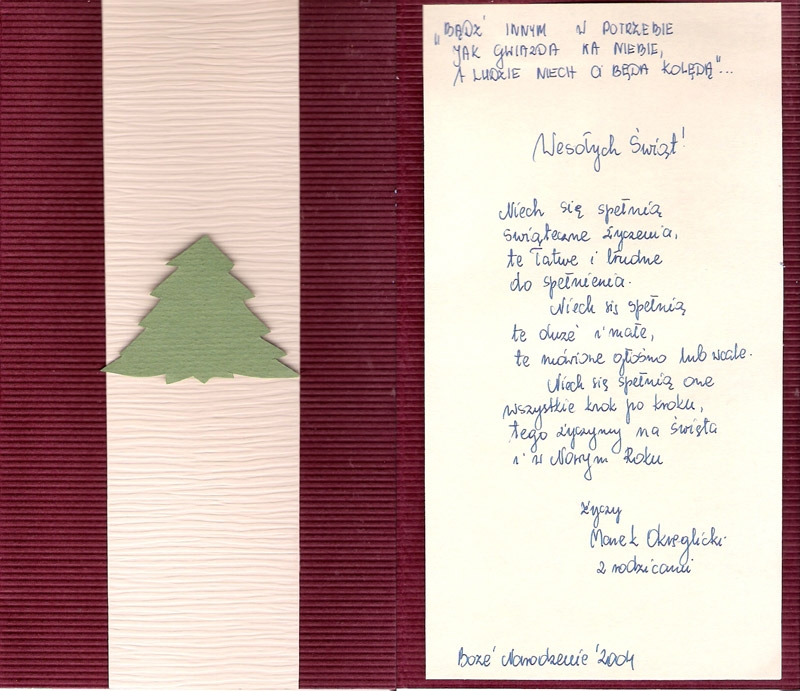 „BĄDŹ INNYM W POTRZEBIE
JAK GWIAZDA NA NIEBIE,
A LUDZIE NIECH CI BĘDĄ KOLĘDĄ"...
Wesołych Świąt!
Niech się spełnią
świąteczne życzenia,
te łatwe i trudne
do spełnienia.
Niech się spełnią
te duże i małe,
te mówione głośno lub wcale.
Niech się spełnią one
wszystkie krok po kroku,
tego życzymy na święta
i w Nowym Roku
życzy
Marek Okręglicki
z rodzicami
Boże Narodzenie '2004